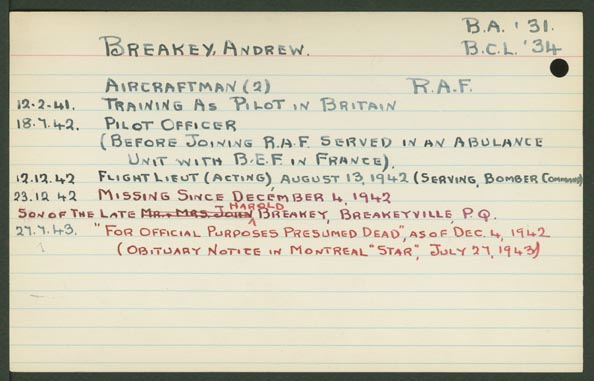 B.A. '31.
BREAKEY, ANDREW. B.C.L. '34
AIRCRAFTMAN (2) R.A.F.
12.2.41. TRAINING AS PILOT IN BRITAIN
18.7.42. PILOT OFFICER
(BEFORE JOINING R.A.F. SERVED IN AN ABULANCE
UNIT WITH B.E.F. IN FRANCE).
12.12.42 FLIGHT LIEUT (ACTING), AUGUST 13, 1942 (SERVING, BOMBER COMMAND)
23.12 42 MISSING SINCE DECEMBER 4, 1942
SON OF THE LATE MR. + MRS. JOHN J. HAROLD BREAKEY, BREAKEYVILLE, P.Q.
27.7.43. "FOR OFFICIAL PURPOSES PRESUMED DEAD", AS OF DEC. 4, 1942
(OBITUARY NOTICE IN MONTREAL "STAR", JULY 27, 1943)